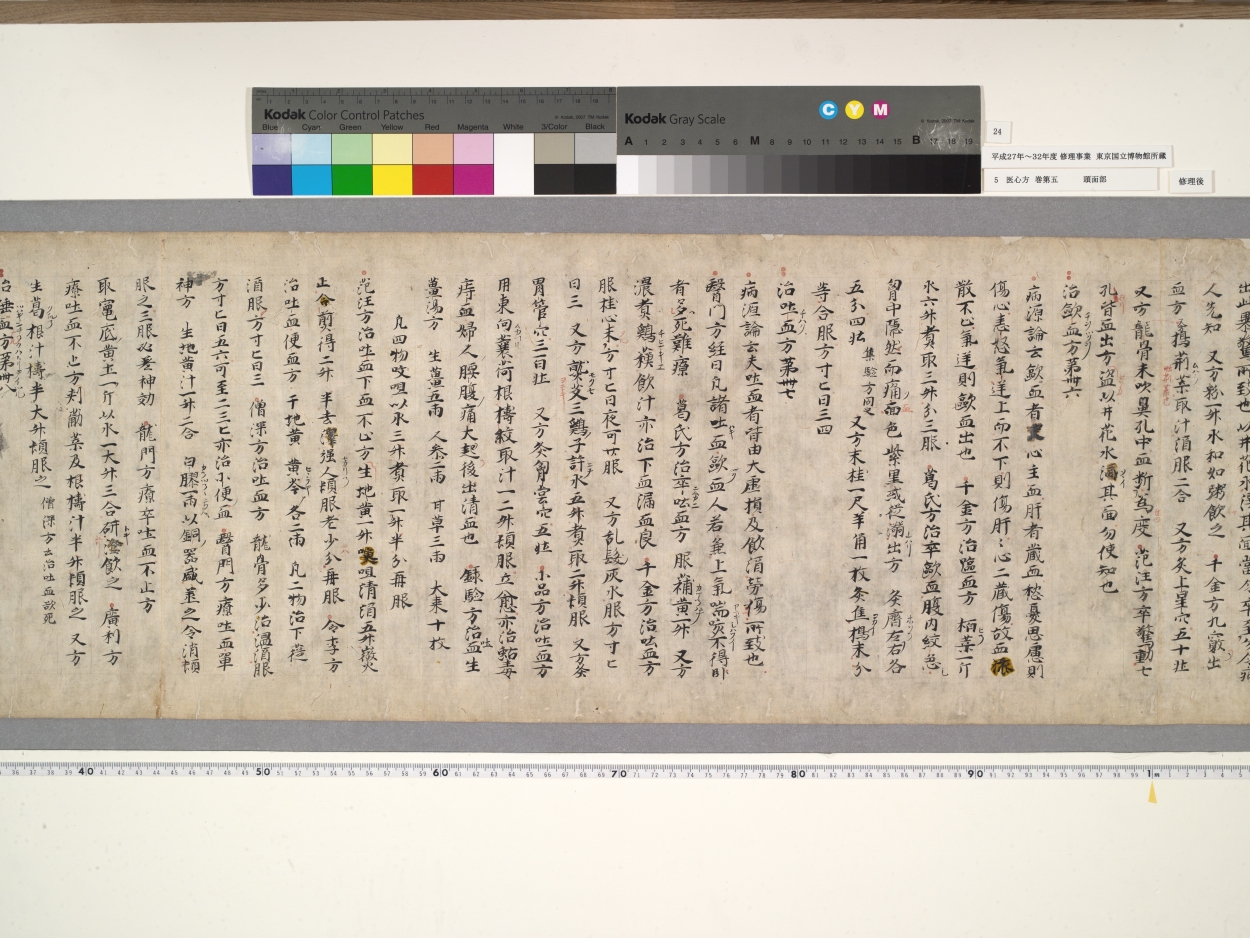 Kodak Color Control Patches
Blue Cyan Green Yellow Red Magenta White 3/Color Black
Kodak Gray Scale
C Y M
A 1 2 3 4 5 6 M 8 9 10 11 12 13 14 15 B 17 18 19
24
平成27年〜32年度 修理事業 東京国立博物館所蔵
5 医心方 巻第五 頭面部
修理後
人先知 又方粉一升水和如粥飲之 千金方九竅出
血方 搗荊葉取汁酒服二合 又方灸上星穴五十壮
又方 龍骨末吹鼻孔中血断為度 范汪方卒驚動七
孔皆血出方盗以井花水其面勿使知也
治歐血方第卅六
病源論云歐血者心主血肝者蔵血愁憂思慮則
傷心恚怒氣逆上而不下則傷肝々心二蔵傷故血
散不止氣逆則歐血出也 千金方治血方 栢葉一斤
水六升煮取三升分三服 葛氏方治卒歐血腹内絞急
胸中隠然而痛面色紫黒或従溺出方 灸臍左右各
五分四壮 集驗方同之 又方末桂一尺羊角一枚灸焦搗末分
等合服方寸匕日三四
治吐血方第卅七
病源論云夫吐血者皆由大虚損及飲酒勞傷所致也
醫門方経曰凡諸吐血歐血人若兼上氣喘咳不得卧
者多死難療 葛氏方治卒吐血方 服蒲黄一升 又方
濃煮鶏穄飲汁亦治下血漏血良 千金方治吐血方
服桂心末方寸匕日夜可廿服 又方乱髮灰水服方寸匕
日三 又方 艾三鶏子許水五升煮取二升頓服 又方灸
胃管穴三百壮 又方灸胸堂穴五壮 小品方治吐血方
用東向蘘荷根搗絞取汁一二升頓服立愈亦治蛄毒
痔血婦人腰腹痛大起後出清血也 録驗方治吐血生
薑湯方 生薑五兩 人参二兩 甘草三兩 大棗十枚
凡四物㕮咀以水三升煮取一升半分再服
范汪方治吐血下血不止方生地黄一斤㕮咀清酒五升微火
上煎得二升半去滓强人頓服老少分再服 令李方
治吐血便血方 干地黄 黄芩各二兩 凡二物治下從
酒服方寸匕日三 僧深方治吐血方 龍骨多少治温酒服
方寸匕日五六可至二三匕亦治小便血 醫門方療吐血單
神方 生地黄汁一升二合 白膠一兩以銅器盛蒸之令消頓
服之三服必差神効 龍門方療卒吐血不止方
取竈底黄土一斤以水一大升三合研澄飲之 廣利方
療吐血不止方刺薊葉及根搗汁半升頓服之 又方
生葛根汁搗半大升頓服之 僧深方云治吐血欲死
治唾血方第卅八